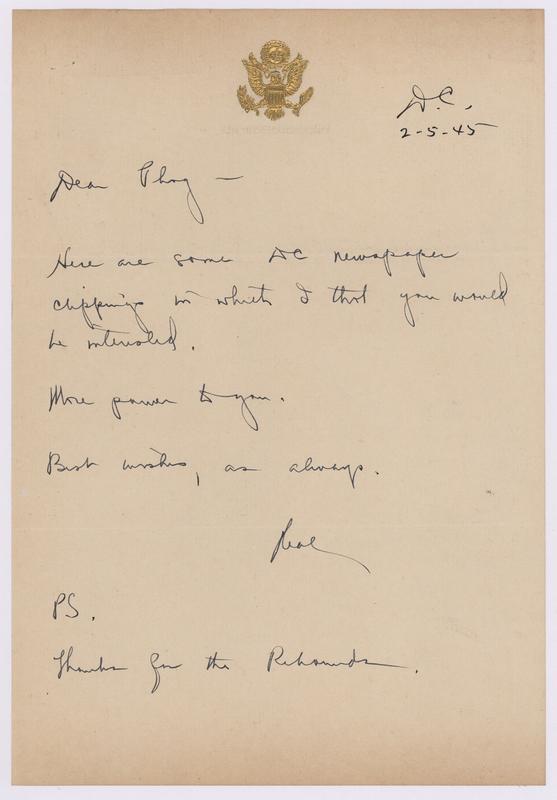 D.C.,
2-5-45
Dear Phog —
Here are some DC newspaper
clippings in which I thot you would
be interested.
More power to you.
Best wishes, as always.
PS.
Thanks for the Rebounds.